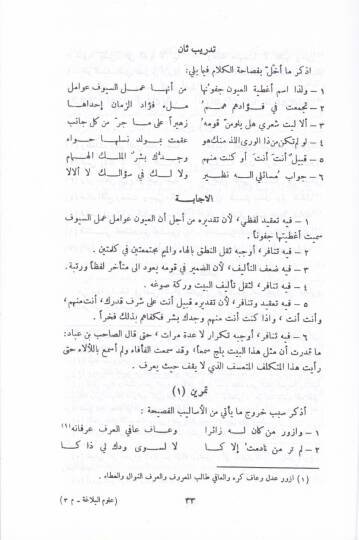 تدريب ثان
اذكر ما أخلّ بفصاحة الكلام فيما يلي :
١ – ولذا اسم أغطية العيون جفونُها من أنها عمل السيوف عوامل
٢ – تجمعت في فؤادهم هممٌ ملء فؤاد الزمان إحداها
٣ – ألا ليت شعري هل يلومنّ قومه زهيراً على ما جرّ من كل جانب
٤ – لو لم تكن من ذا الورى اللذ منك هو عقمت بمولد نسلها حواء
٥ – قبيلٌ أنت أنت أو كنت منهم وجدك بشر الملك الهمام
٦ – جواب مسائلي اله نظير ولا لك في سؤالك لا ألالا
الاجابة
١ – فيه تعقيد لفظي ، لأن تقديره من أجل أن العيون عوامل عمل السيوف
سميت أغطيتها جفوناً .
٢ – فيه تنافر ، أوجبه ثقل النطق بالهاء والميم مجتمعتين في كلمتين .
٣ – فيه ضعف التأليف ، لأن الضمير في قومه يعود الى متأخر لفظاً ورتبة .
٤ – فيه تنافر ، لثقل تأليف البيت وركة صوغه .
٥ – فيه تعقيد وتنافر ، لأن تقديره قبيل أنت على شرف قدرك ، أنت منهم ،
وأنت أنت ، واذا كنت أنت منهم وجدك بشر فكفاهم بذلك فخراً .
٦ – فيه تنافر ، أوجبه تكرار لا عدة مرات ، حتى قال الصاحب بن عباد :
ما قدرت أن مثل هذا البيت يلج سمعاً ، وقد سمعت الفأفاء ولم أسمع باللألاء حتى
رأيت هذا المتكلف المتعسف الذي لا يقف حيث يعرف .
تمرين (١)
أذكر سبب خروج ما يأتي من الأساليب الفصيحة :
١ – وازور من كان له زائرا وعاف عافي العرف عرفانه (١)
٢ – لم تر من نادمت إلا كا لا لسوى ودك لي ذا كا
(١) ازور عدل وعاف كره والعافي طالب المعروف والعرف النوال والعطاء .
٣٣
(علوم البلاغة – م ٣)